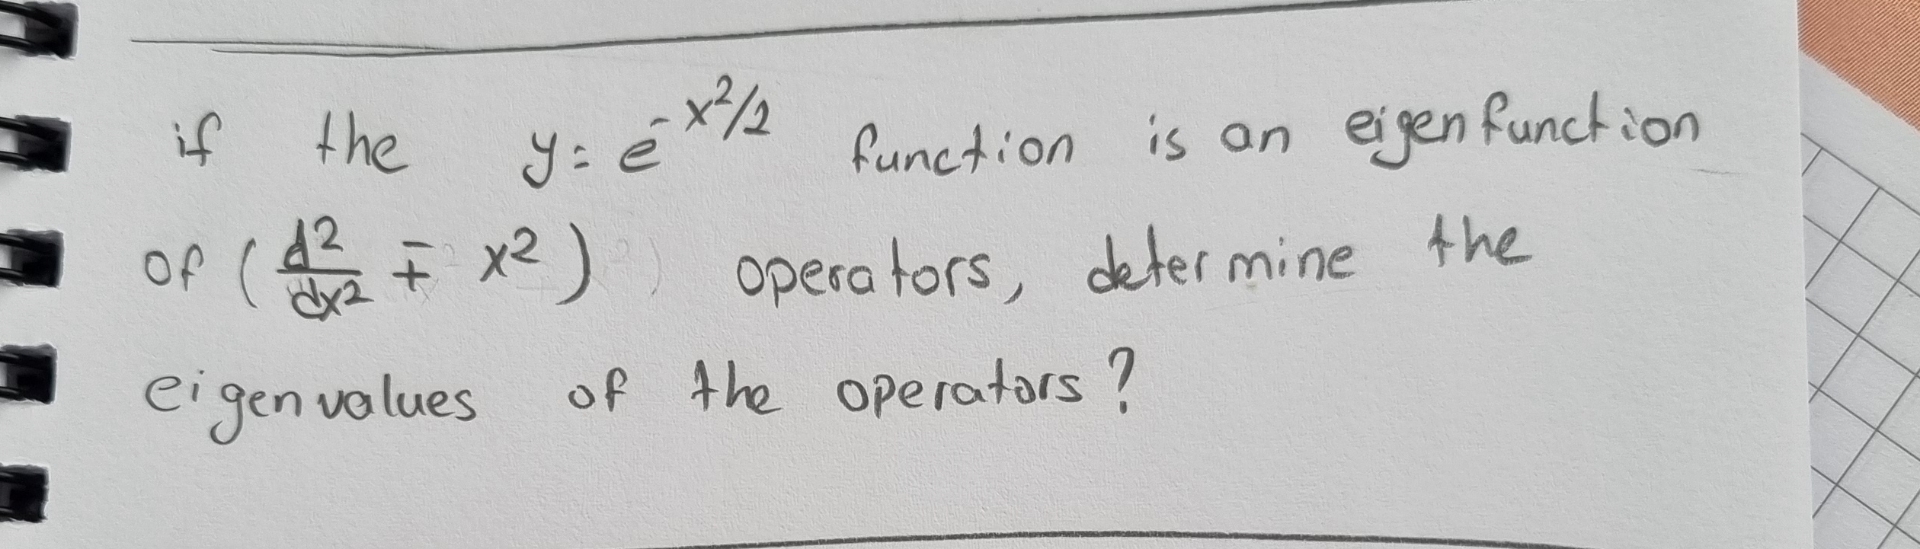 if the y = e^{-x^2/2} function is an eigenfunction
of (d^2/dx^2 ∓ x^2) operators, determine the
eigenvalues of the operators?